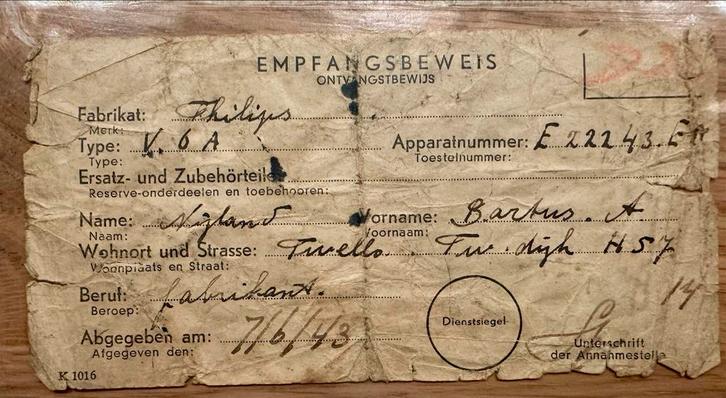 EMPFANGSBEWEIS
ONTVANGSTBEWIJS
Fabrikat: Philips
Merk:
Type: V. 6 A Apparatnummer: E 22243. E
Type: Toestelnummer:
Ersatz- und Zubehörteile
Reserve-onderdeelen en toebehooren:
Name: Nijland Vorname: Bartus. A
Naam: Voornaam:
Wohnort und Strasse: Twello. Tw. dijk H 57
Woonplaats en Straat:
Beruf: fabrikant.
Beroep: 14
Abgegeben am: 7/6/43 Dienstsiegel
Afgegeven den: Unterschrift
der Annahmestelle
K 1016